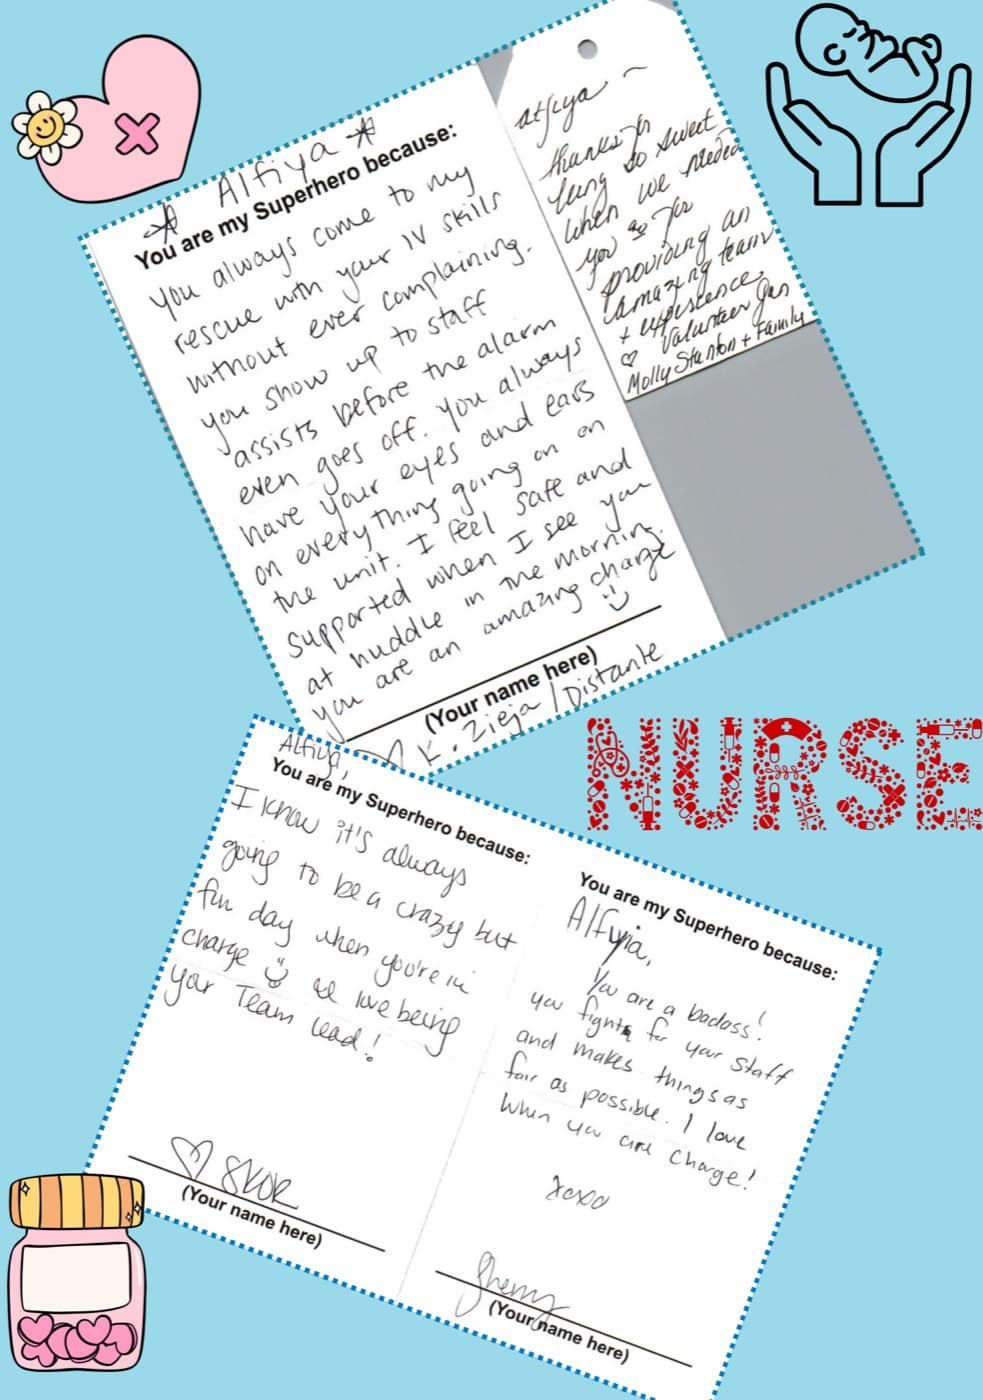 ☆ Alfiya ☆
You are my Superhero because:
you always come to my
rescue with your IV skills
without ever complaining.
you show up to staff
assists before the alarm
even goes off. You always
have your eyes and ears
on everything going on on
the unit. I feel safe and
supported when I see you
at huddle in the morning.
you are an amazing charge
(Your name here)
K. Zieja / Distante
Alfiya ~
thanks for
being so sweet
when we needed
you & for
providing an
amazing team
+ experience,
♡ Volunteer Jan
Molly Stanton + Family
NURSE
Alfiya,
You are my Superhero because:
I know it's always
going to be a crazy but
fun day when you're in
charge ☺ we love being
your Team lead!
♡ SKOR
(Your name here)
You are my Superhero because:
Alfyia,
You are a badass!
you fight for your staff
and makes things as
fair as possible. I love
when you are charge!
xoxo
Sherry
(Your name here)